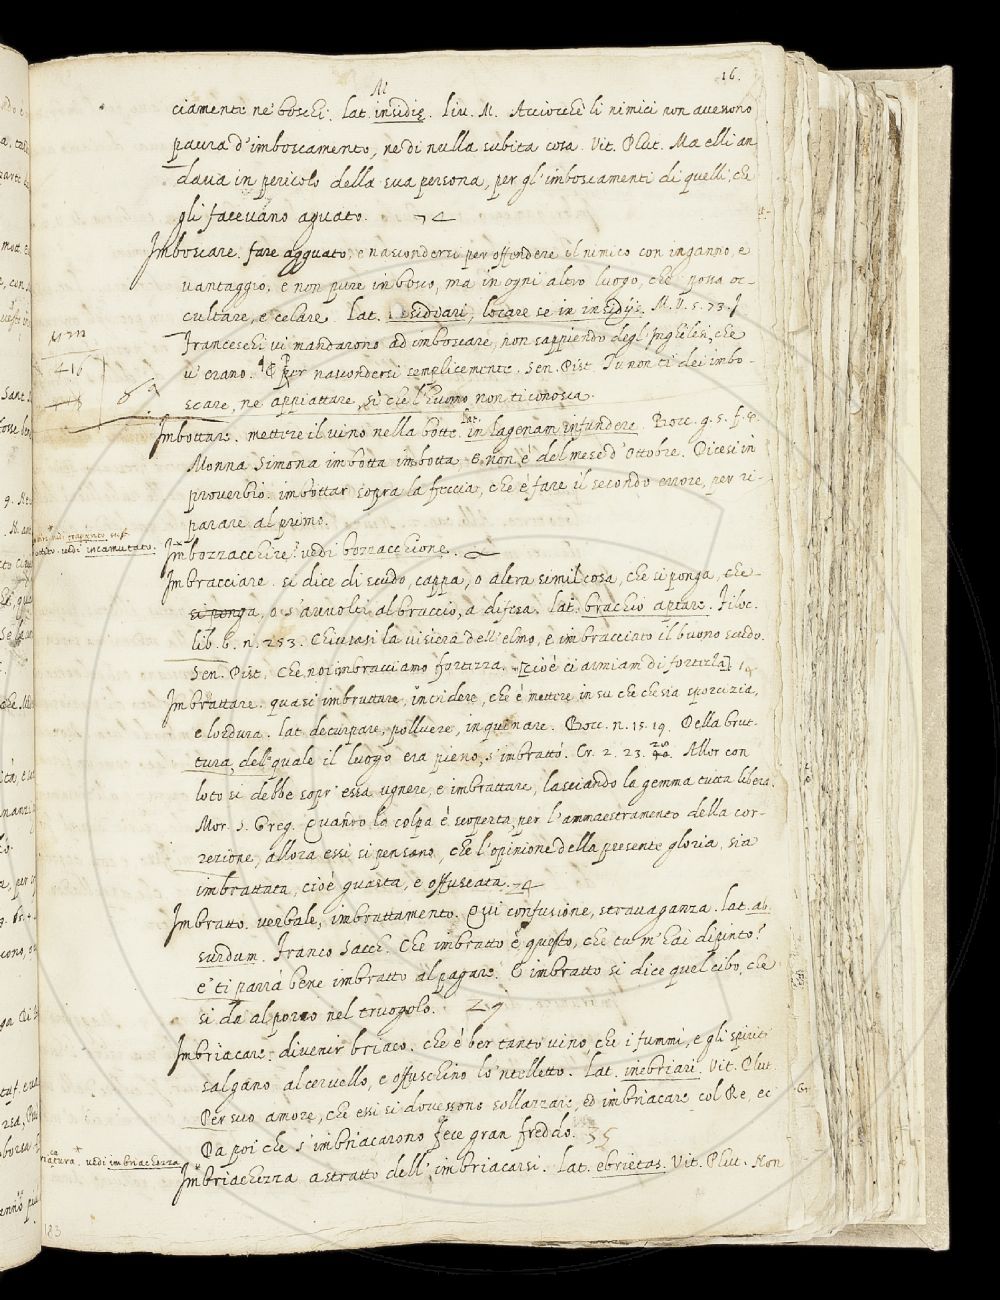 16.
M
ciamenti ne' boschi. Lat. insidie. Liv. M. Acciocchè li nimici non avessono
paura d'imboscamento, ne di nulla subita cosa. Vit. Plut. Ma elli an
dava in pericolo della sua persona, per gl'imboscamenti di quelli, che
gli facevano aguato.
Imboscare. fare agguato, e nascondersi per offendere il nimico con inganno, e
vantaggio, e non pure in bosco, ma in ogni altro luogo, che possa oc-
cultare, e celare. Lat. insidiari, locare se in insidijs. M. V. 5. 73. I
Franceschi vi mandarono ad imboscare, non sappiendo degl'Inghilesi, che
v'erano. ¶ E Per nascondersi semplicemente. Sen. Pist. Tu non ti dei imbo-
scare, ne appiattare, si che l'huomo non ti conosca.
Imbottare. mettere il vino nella botte. Lat. in lagenam infundere. Bocc. g. 5. f.
Monna Simona imbotta imbotta E non è del mese d'Ottobre. Dicesi in
proverbio. imbottar sopra la feccia, che è fare il secondo errore, per ri-
parare al primo.
vedi incamutato.
Imborracciare. vedi borraccione.
Imbracciare. si dice di scudo, cappa, o altra simil cosa, che si ponga, che
si ponga, o s'avvolti al braccio, a difesa. Lat. brachio aptare. Filoc.
lib. 6. n. 253. Chiusasi la visiera dell'elmo, e imbracciato il buono scudo.
Sen. Pist. Che noi imbracciamo fortezza. [cioè ci armiam di fortezza]
Imbrattare. quasi imbruttare, intridere, che è mettere in su che che sia sporcizia,
e lordura. Lat. deturpare, polluere, inquinare. Bocc. n. 15. 19. Della brut-
tura, della quale il luogo era pieno, s'imbrattò. Cr. 2. 23. 28 Allor con
loto si debbe sopr'essa ugnere, e imbrattare, lasciando la gemma tutta libera.
Mor. S. Greg. Quando la colpa è scoperta, per l'ammaestramento della cor-
rezione, allora essi si pensano, che l'opinione della presente gloria, sia
imbrattata, cioè guasta, e offuscata.
Imbratto. verbale, imbrattamento. Qui confusione, stravaganza. Lat. ab
surdum. Franco Sacch. Che imbratto è questo, che tu m'hai dipinto?
e' ti parrà bene imbratto al pagare. E imbratto si dice quel cibo, che
si dà al porco nel truogolo.
Imbriacare. divenir briaco. che è ber tanto vino, che i fummi, e gli spiriti
salgano al cervello, e offuschino lo 'ntelletto. Lat. inebriari. Vit. Plut.
Per suo amore, che essi si dovessono sollazzare, ed imbriacare col Re, ec
Da poi che s'imbriacarono fece gran freddo.
vedi imbriachezza
Imbriachezza astratto dell'imbriacarsi. Lat. ebrietas. Vit. Plut. Non
183